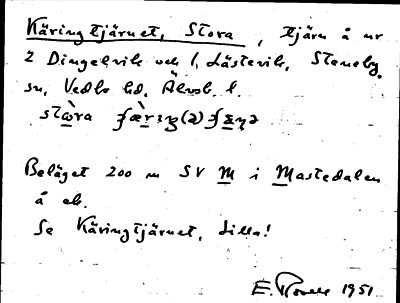 Käringtjärnet, Stora, tjärn å nr
2 Dingelvik och 1, Låstevik, Steneby
sn, Vedbo hd, Älvsb. l.
Beläget 200 m SV M i Mastedalen
å ek.
Se Käringtjärnet, Lilla!
1951